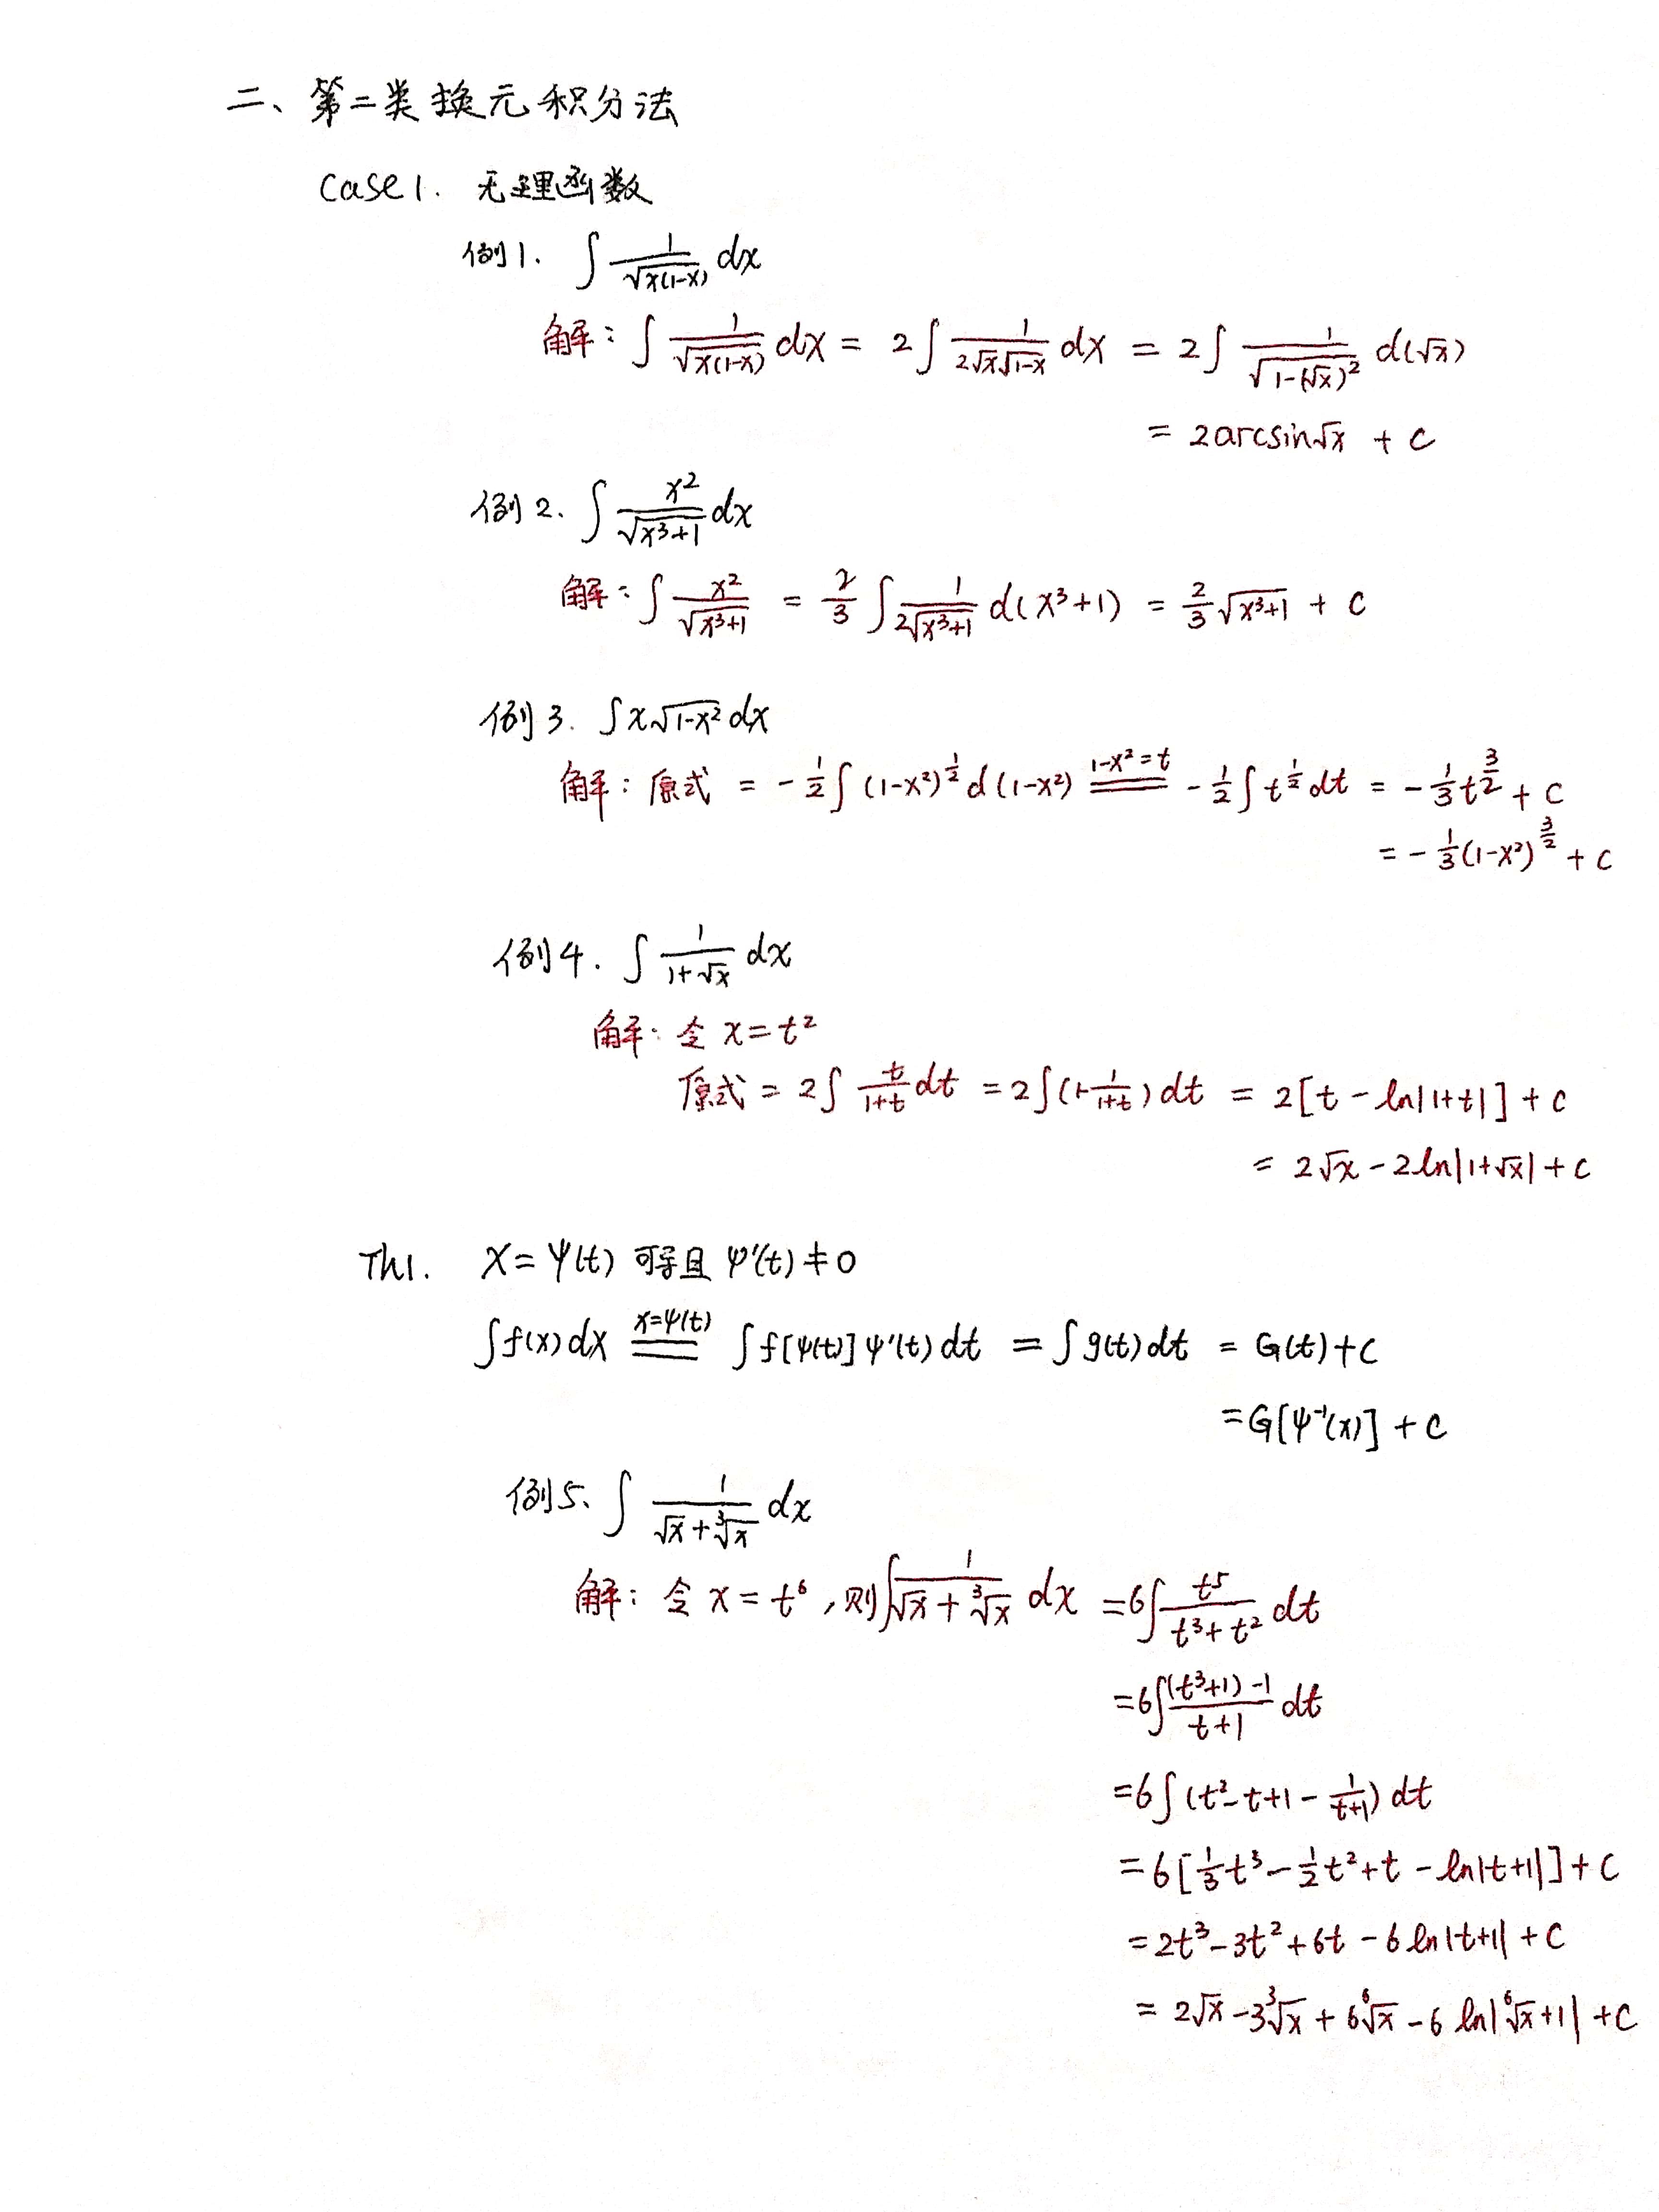 二、第二类换元积分法
Case 1. 无理函数
例1. ∫ 1/√(x(1-x)) dx
解: ∫ 1/√(x(1-x)) dx = 2∫ 1/(2√x√(1-x)) dx = 2∫ 1/√(1-(√x)²) d(√x)
= 2arcsin√x + C
例2. ∫ x²/√(x³+1) dx
解: ∫ x²/√(x³+1) = 2/3 ∫ 1/(2√(x³+1)) d(x³+1) = 2/3 √(x³+1) + C
例3. ∫x√(1-x²) dx
解: 原式 = -1/2 ∫ (1-x²)^(1/2) d(1-x²) \xlongequal{1-x²=t} -1/2 ∫ t^(1/2) dt = -1/3 t^(3/2) + C
= -1/3 (1-x²)^(3/2) + C
例4. ∫ 1/(1+√x) dx
解: 令 x = t²
原式 = 2∫ t/(1+t) dt = 2∫(1-1/(1+t)) dt = 2[t - ln|1+t|] + C
= 2√x - 2ln|1+√x| + C
Th1. X = ψ(t) 可导且 ψ'(t) ≠ 0
∫f(x)dx \xlongequal{x=ψ(t)} ∫f[ψ(t)]ψ'(t)dt = ∫g(t)dt = G(t)+C
= G[ψ⁻¹(x)] + C
例5、∫ 1/(√x+∛x) dx
解: 令 x = t⁶, 则∫ 1/(√x+∛x) dx = 6∫ t⁵/(t³+t²) dt
= 6∫ ((t³+1)-1)/(t+1) dt
= 6∫(t²-t+1 - 1/(t+1)) dt
= 6[1/3 t³ - 1/2 t² + t - ln|t+1|] + C
= 2t³ - 3t² + 6t - 6ln|t+1| + C
= 2√x - 3∛x + 6⁶√x - 6 ln|⁶√x+1| + C